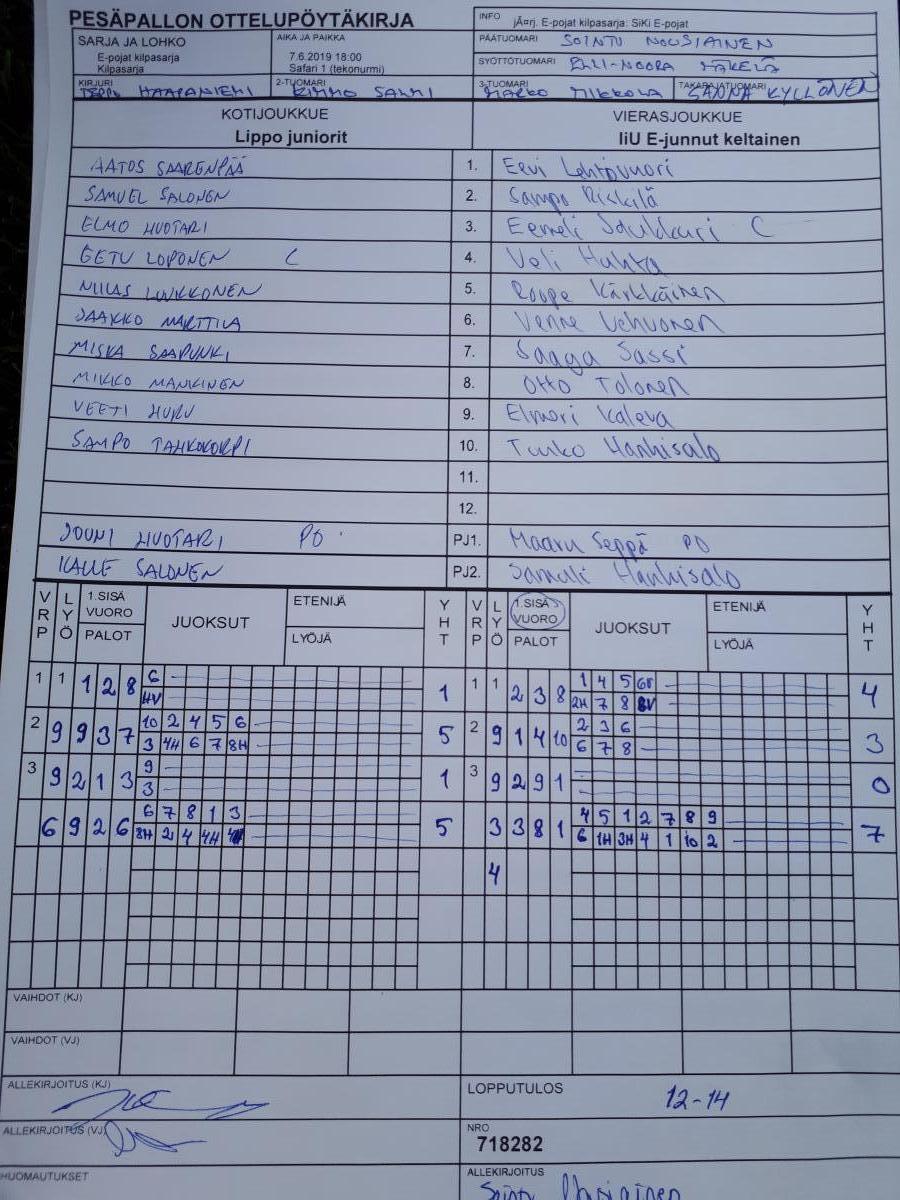 PESÄPALLON OTTELUPÖYTÄKIRJA
INFO jÃ¤rj. E-pojat kilpasarja: SiKi E-pojat
SARJA JA LOHKO
E-pojat kilpasarja
Kilpasarja
AIKA JA PAIKKA
7.6.2019 18:00
Safari 1 (tekonurmi)
PÄÄTUOMARI SOINTU NOUSIAINEN
SYÖTTÖTUOMARI ELLI-NOORA MÄKELÄ
KIRJURI TEPPO HAAPANIEMI
2-TUOMARI KIMMO SALMI
3-TUOMARI MARKO MIKKOLA
TAKARAJATUOMARI SANNA KYLLÖNEN
KOTIJOUKKUE
Lippo juniorit
VIERASJOUKKUE
IiU E-junnut keltainen
AATOS SAARENPÄÄ 1. Eevi Lehtovuori
SAMUEL SALONEN 2. Sampo Riskilä
ELMO HUOTARI 3. Eemeli Soukkari C
EETU LOPONEN C 4. Veli Huhta
NIILAS LUUKKONEN 5. Roope Kärkkäinen
JAAKKO MARTTILA 6. Venne Vehvonen
MISKA SAAPUNKI 7. Saaga Sassi
MIKKO MANKINEN 8. Otto Tolonen
VEETI HURU 9. Elmeri Kaleva
SAMPO TAHKOKORPI 10. Tuuko Hanhisalo
11.
12.
JOUNI HUOTARI PO PJ1. Maaru Seppä PO
KALLE SALONEN PJ2. Samuli Hanhisalo
VRP LYÖ 1.SISÄ VUORO PALOT JUOKSUT ETENIJÄ LYÖJÄ YHT VRP LYÖ 1.SISÄ VUORO PALOT JUOKSUT ETENIJÄ LYÖJÄ YHT
1 1 1 2 8 6 1 1 1 2 3 8 1 4 5 6V 4
4V 2H 7 8 8V
2 9 9 3 7 10 2 4 5 6 5 2 9 1 4 10 2 3 6 3
3 4H 6 7 8H 6 7 8
3 9 2 1 3 9 1 3 9 2 9 1 0
3
6 9 2 6 6 7 8 1 3 5 3 3 8 1 4 5 1 2 7 8 9 7
8H 2 4 4H 6 1H 3H 4 1 10 2
4
VAIHDOT (KJ)
VAIHDOT (VJ)
ALLEKIRJOITUS (KJ)
LOPPUTULOS 12-14
ALLEKIRJOITUS (VJ)
NRO
718282
HUOMAUTUKSET
ALLEKIRJOITUS
Sointu Nousiainen